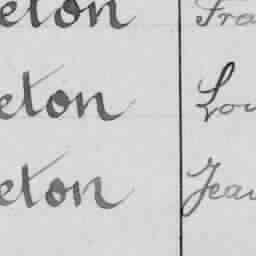 eton Fra
eton Lou
eton Jean